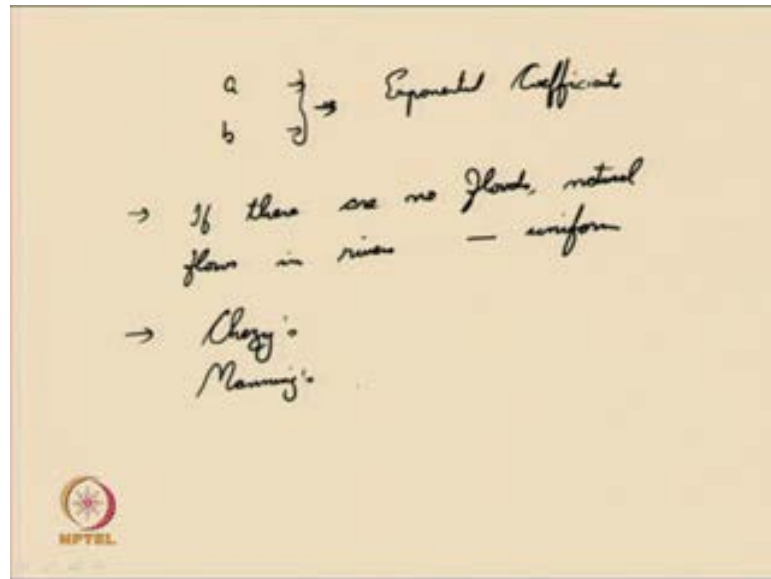 a →
b → } → Exponential Coefficients
→ If there are no floods, natural
flows in rivers — uniform
→ Chezy's
Manning's
NPTEL